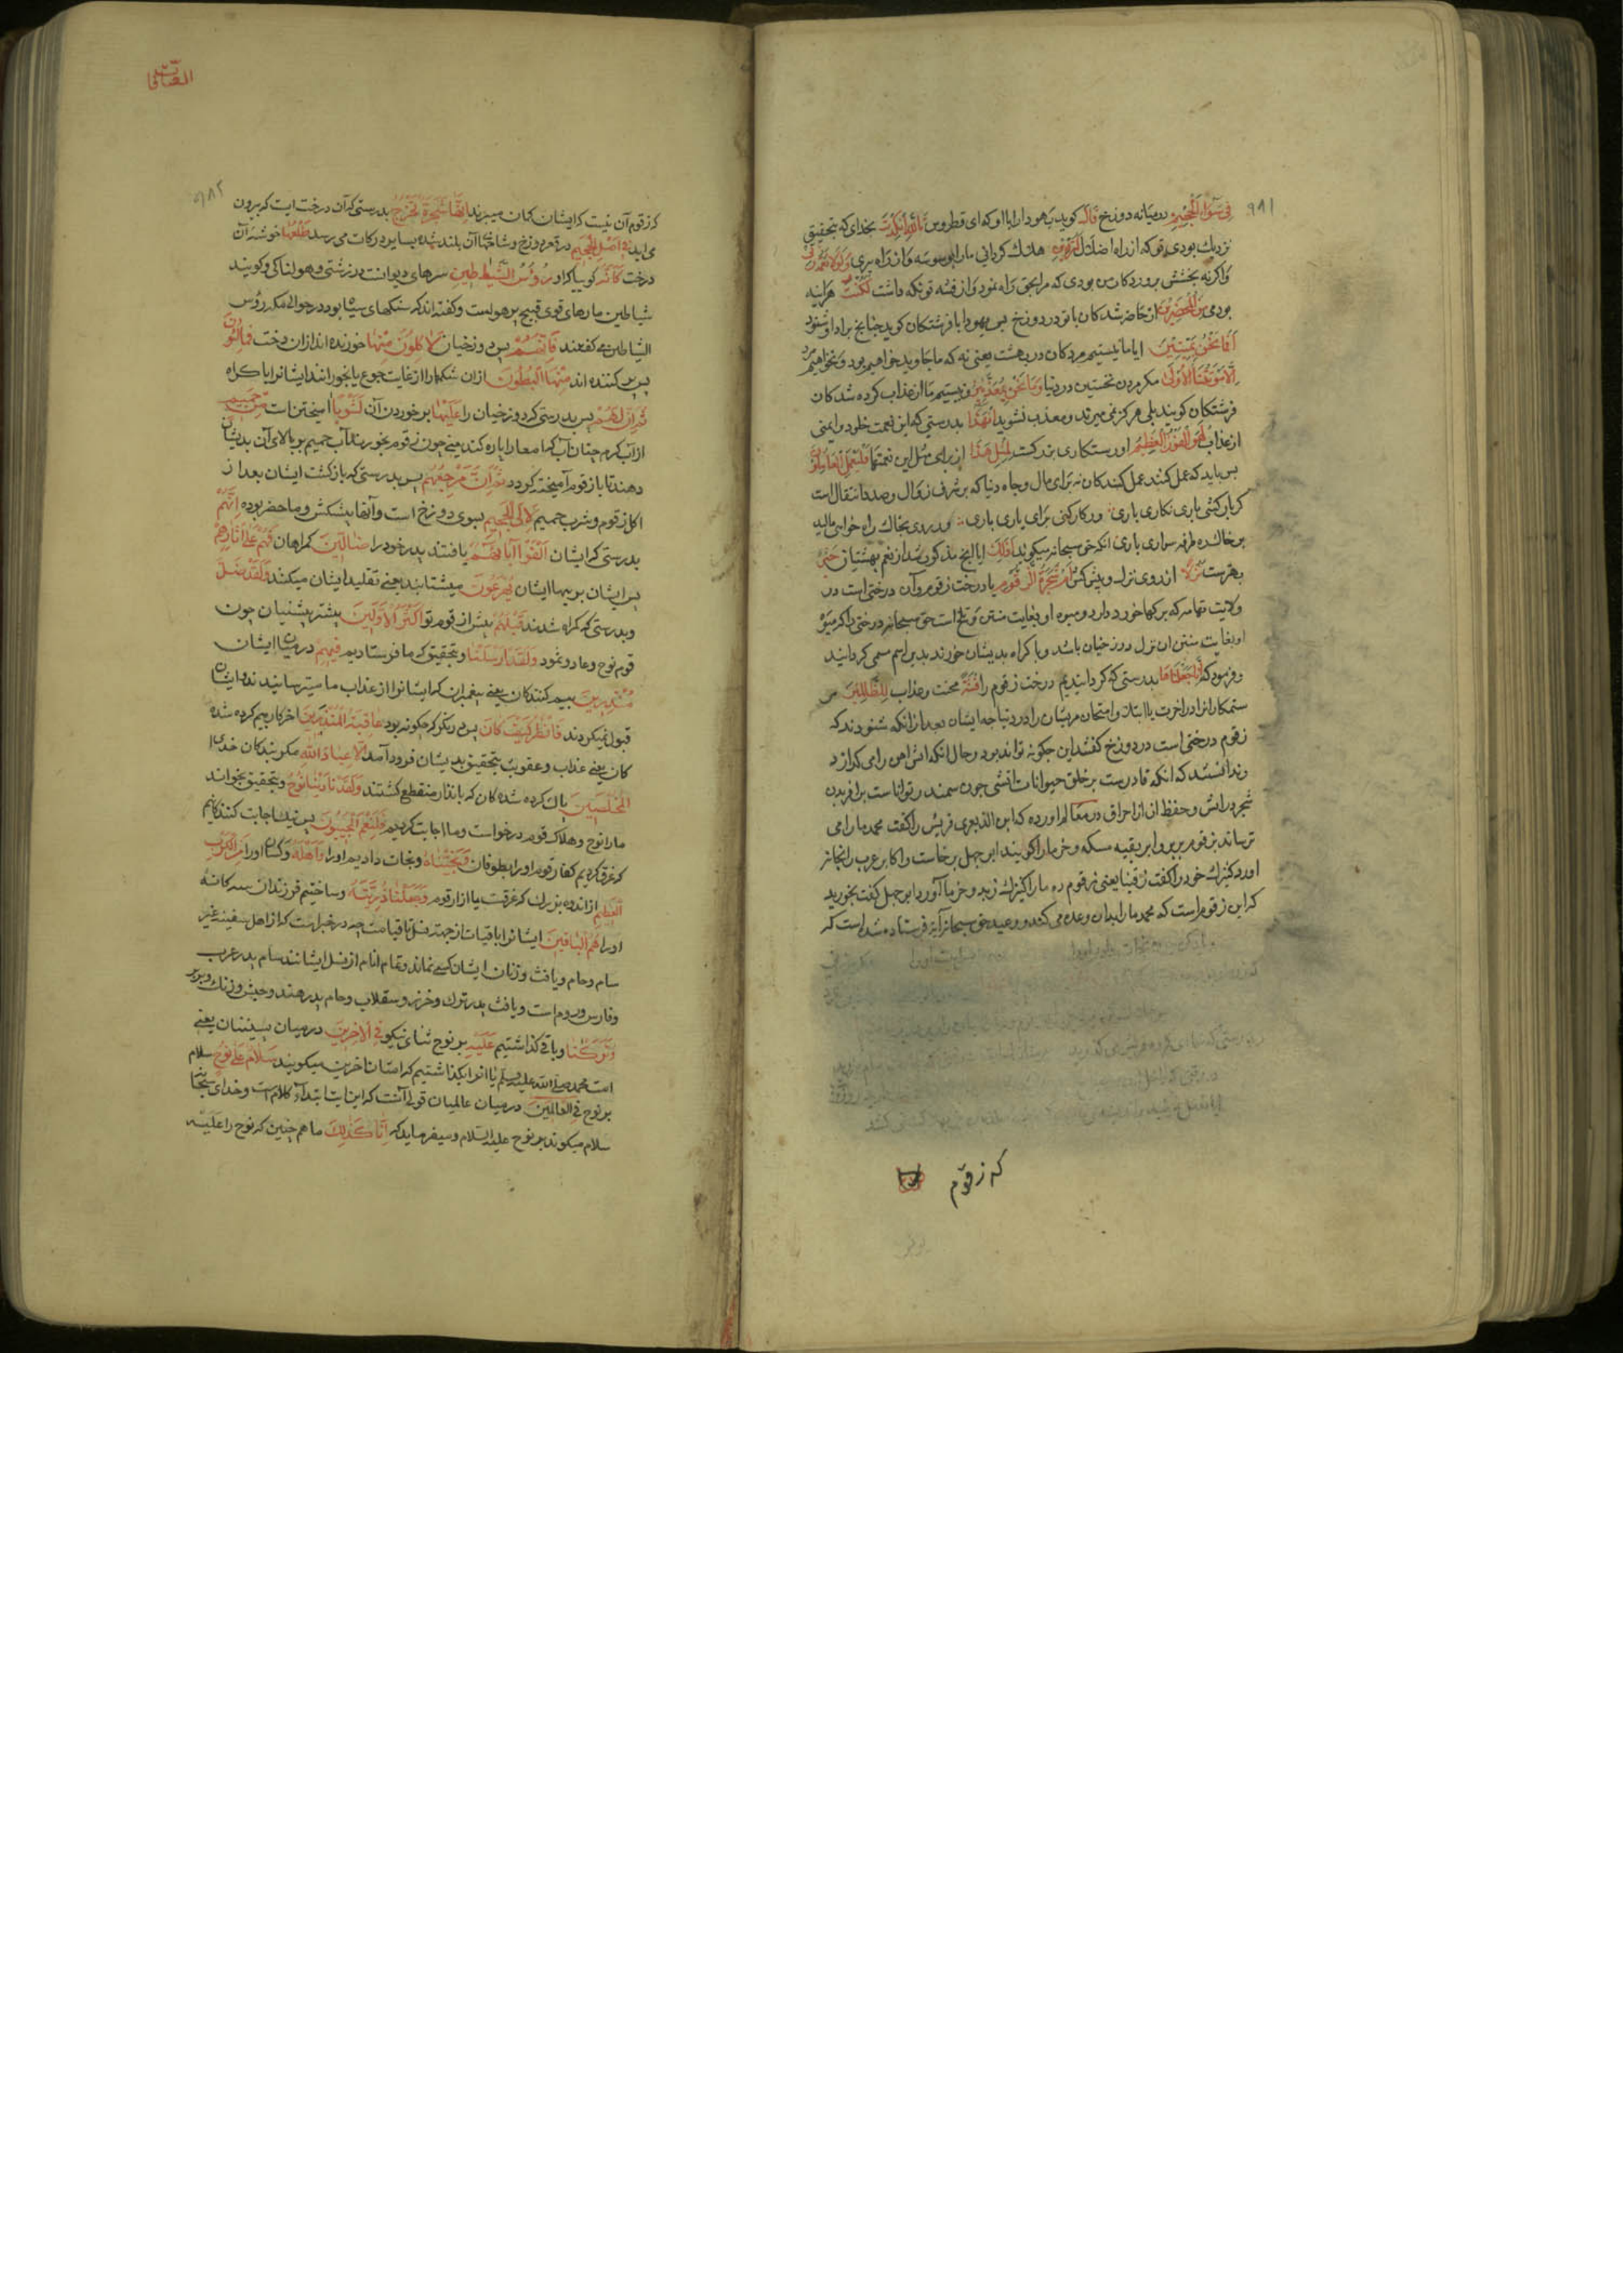 ۹۸۱
فِي سَوَاءِ الْجَحِيمِ در میانه دوزخ قَالَ کوید یهودا را با او که ای قطروس تَاللَّهِ إِنْ كِدْتَ بخدای که بتحقیق
نزدیک بودی تو که از راه اضلال لَتُرْدِينِ هلاک کردانی مارا بوسوسه و از راه بری وَلَوْلَا نِعْمَةُ رَبِّي
واکر نه بخشش پروردکار من بودی که مرا بحق راه نمود و از فتنه تو نکه داشت لَكُنْتُ هراینه
بودمی مِنَ الْمُحْضَرِينَ از حاضر شدکان با تو در دوزخ پس یهودا با فرشتکان کوید چنانچ برادر او شنود
أَفَمَا نَحْنُ بِمَيِّتِينَ ایا ما نیستیم مردکان در بهشت یعنی نه که ما جاوید خواهیم بود و نخواهیم مرد
إِلَّا مَوْتَتَنَا الْأُولَى مکر مردن نخستین در دنیا وَمَا نَحْنُ بِمُعَذَّبِينَ و نیستیم ما از عذاب کرده شدکان
فرشتکان کویند بلی هرکز نمی میرند و معذب نشوید إِنَّ هَذَا بدرستی که این نعمت خلود و ایمنی
از عذاب لَهُوَ الْفَوْزُ الْعَظِيمُ او رستکاری بزرکست لِمِثْلِ هَذَا از برای مثل این نعمتها فَلْيَعْمَلِ الْعَامِلُونَ
پس باید که عمل کنند عمل کنندکان نه برای مال و جاه دنیا که بر شرف زوال و صدد انتقال است
کر بار کشی باری نکاری باری ور کار کنی برای یاری باری ور روی بخاک راه خواهی مالید
بر خاک ره طرفه سواری باری انکه حق سبحانه میکوید أَذَلِكَ ایا انچ مذکور شد از نعم بهشتیان خَيْرٌ
بهترست نُزُلًا از روی نزل و پیش کش أَمْ شَجَرَةُ الزَّقُّومِ یا درخت زقوم و آن درختی است در
ولایت تهامه که برکها خورد دارد و میوه او بغایت منتن و تلخ است حق سبحانه درختی را که میوه
او بغایت منتن ان نزل دوزخیان باشد و با کراه بدیشان خورند بدین اسم مسمی کردانید
و فرمود که إِنَّا جَعَلْنَاهَا بدرستی که کردانیدیم درخت زقوم را فِتْنَةً محنت و عذاب لِلظَّالِمِينَ مر
ستمکارانرا در اخرت یا ابتلا و امتحان مریشان را در دنیا چه ایشان بعد از انکه شنودند که
زقوم درختی است در دوزخ کفتند این چکونه تواند بود و حال انکه اتش اهن را می کدازد
و ندانستند که انکه قادرست بر خلق حیوانات اتشی چون سمندر تواناست بر افریدن
شجر در اتش و حفظ ان از احراق در معالم اورده که ابن الزبعری قریش را کفت محمد ما را می
ترساند بزقوم بربر و افریقیه مسکه و خرما را کویند ابو جهل برخاست و اکابر عرب را بخانه
اورد کنیزک خود را کفت زقمینا یعنی زقوم ده مارا کنیزک زبد و خرما آورد ابو جهل کفت بخورید
که این زقوم است که محمد مارا بدان وعده می کند و وعید حق سبحانه آیة فرستاده شد است که
که زقوم
الصافات
۹۸۲
که زقوم آن نیست که ایشان کمان میبرند إِنَّهَا شَجَرَةٌ تَخْرُجُ بدرستی که آن درخت ایت که بیرون
می اید فِي أَصْلِ الْجَحِيمِ در قعر دوزخ و شاخها آن بلند شده بسایر درکات می رسد طَلْعُهَا خوشه آن
درخت كَأَنَّهُ کوییا که او رُؤُسُ الشَّيَاطِينِ سرهای دیوانست در زشتی و هولناکی و کویند
شیاطین مارهای قوی قبیح پر هولست و کفته اند که سنکهای سیاه بود در حوالی مکه رؤس
الشیاطین می کفتند فَإِنَّهُمْ پس دوزخیان لَآكِلُونَ مِنْهَا خورنده اند از ان درخت فَمَالِئُونَ
پس پر کننده اند مِنْهَا الْبُطُونَ از ان شکمها را از غایت جوع یا بخورانند ایشانرا با کراه
ثُمَّ إِنَّ لَهُمْ پس بدرستی که دوزخیان را عَلَيْهَا بر خوردن آن لَشَوْبًا امیختن است مِنْ حَمِيمٍ
از آب کرم چنان آب که امعا را پاره کند یعنی چون زقوم بخورند آب حمیم بر بالای آن بدیشان
دهند تا با زقوم آمیخته کردد ثُمَّ إِنَّ مَرْجِعَهُمْ پس بدرستی که بازکشت ایشان بعد از
اکل زقوم و شرب حمیم لَإِلَى الْجَحِيمِ بسوی دوزخ است و آنها پیشکش و ماحضر بوده إِنَّهُمْ
بدرستی که ایشان أَلْفَوْا آبَاءَهُمْ یافتند پدر خود را ضَالِّينَ کمراهان فَهُمْ عَلَى آثَارِهِمْ
پس ایشان بر پیها ایشان يُهْرَعُونَ میشتابند یعنی تقلید ایشان میکنند وَلَقَدْ ضَلَّ
و بدرستی که کمراه شدند قَبْلَهُمْ پیش از قوم تو أَكْثَرُ الْأَوَّلِينَ بیشتر پیشنیان چون
قوم نوح و عاد و ثمود وَلَقَدْ أَرْسَلْنَا و بتحقیق که ما فرستادیم فِيهِمْ در میان ایشان
مُنْذِرِينَ بیم کنندکان یعنی پیغمبران که ایشانرا از عذاب ما میترسانیدند و ایشان
قبول نمیکردند فَانْظُرْ كَيْفَ كَانَ پس در نکر که چکونه بود عَاقِبَةُ الْمُنْذَرِينَ اخر کار بیم کرده شده
کان یعنی عذاب و عقوبت بتحقیق بدیشان فرود آمد إِلَّا عِبَادَ اللَّهِ مکر بندکان خدا
الْمُخْلَصِينَ پاک کرده شده کان که بانذار منقطع کشتند وَلَقَدْ نَادَانَا نُوحٌ و بتحقیق بخواند
مارا نوح و هلاک قوم درخواست و ما اجابت کردیم فَلَنِعْمَ الْمُجِيبُونَ پس نیک اجابت کنندکانیم
که غرق کردیم کفار قوم او را بطوفان وَنَجَّيْنَاهُ و نجات دادیم او را وَأَهْلَهُ و کسان او را مِنَ الْكَرْبِ
الْعَظِيمِ از اندوه بزرک که غرقست یا ازار قوم وَجَعَلْنَا ذُرِّيَّتَهُ و ساختیم فرزندان سه کانه
او را هُمُ الْبَاقِينَ ایشانرا باقیات از جهت نسل تا قیامت چه در خبر است که از اهل سفینه غیر
سام و حام و یافث و زنان ایشان کسی نماند و تمام انام از نسل ایشانند سام پدر عرب
و فارس و روم است و یافث پدر ترک و خزر و سقلاب و حام پدر هند و حبش و زنک و بربر
وَتَرَكْنَا و باقی کذاشتیم عَلَيْهِ بر نوح ثنای نیکو فِي الْآخِرِينَ در میان پسینیان یعنی
امت محمد صلی الله علیه وسلم یا انرا بکذاشتیم که امتان اخرین میکویند سَلَامٌ عَلَى نُوحٍ سلام
بر نوح فِي الْعَالَمِينَ در میان عالمیان قولی آنست که این ایت ابتداء کلام است و خدای سبحانه
سلام میکوید بر نوح علیه السلام و میفرماید که إِنَّا كَذَلِكَ ما هم چنین که نوح را علیه